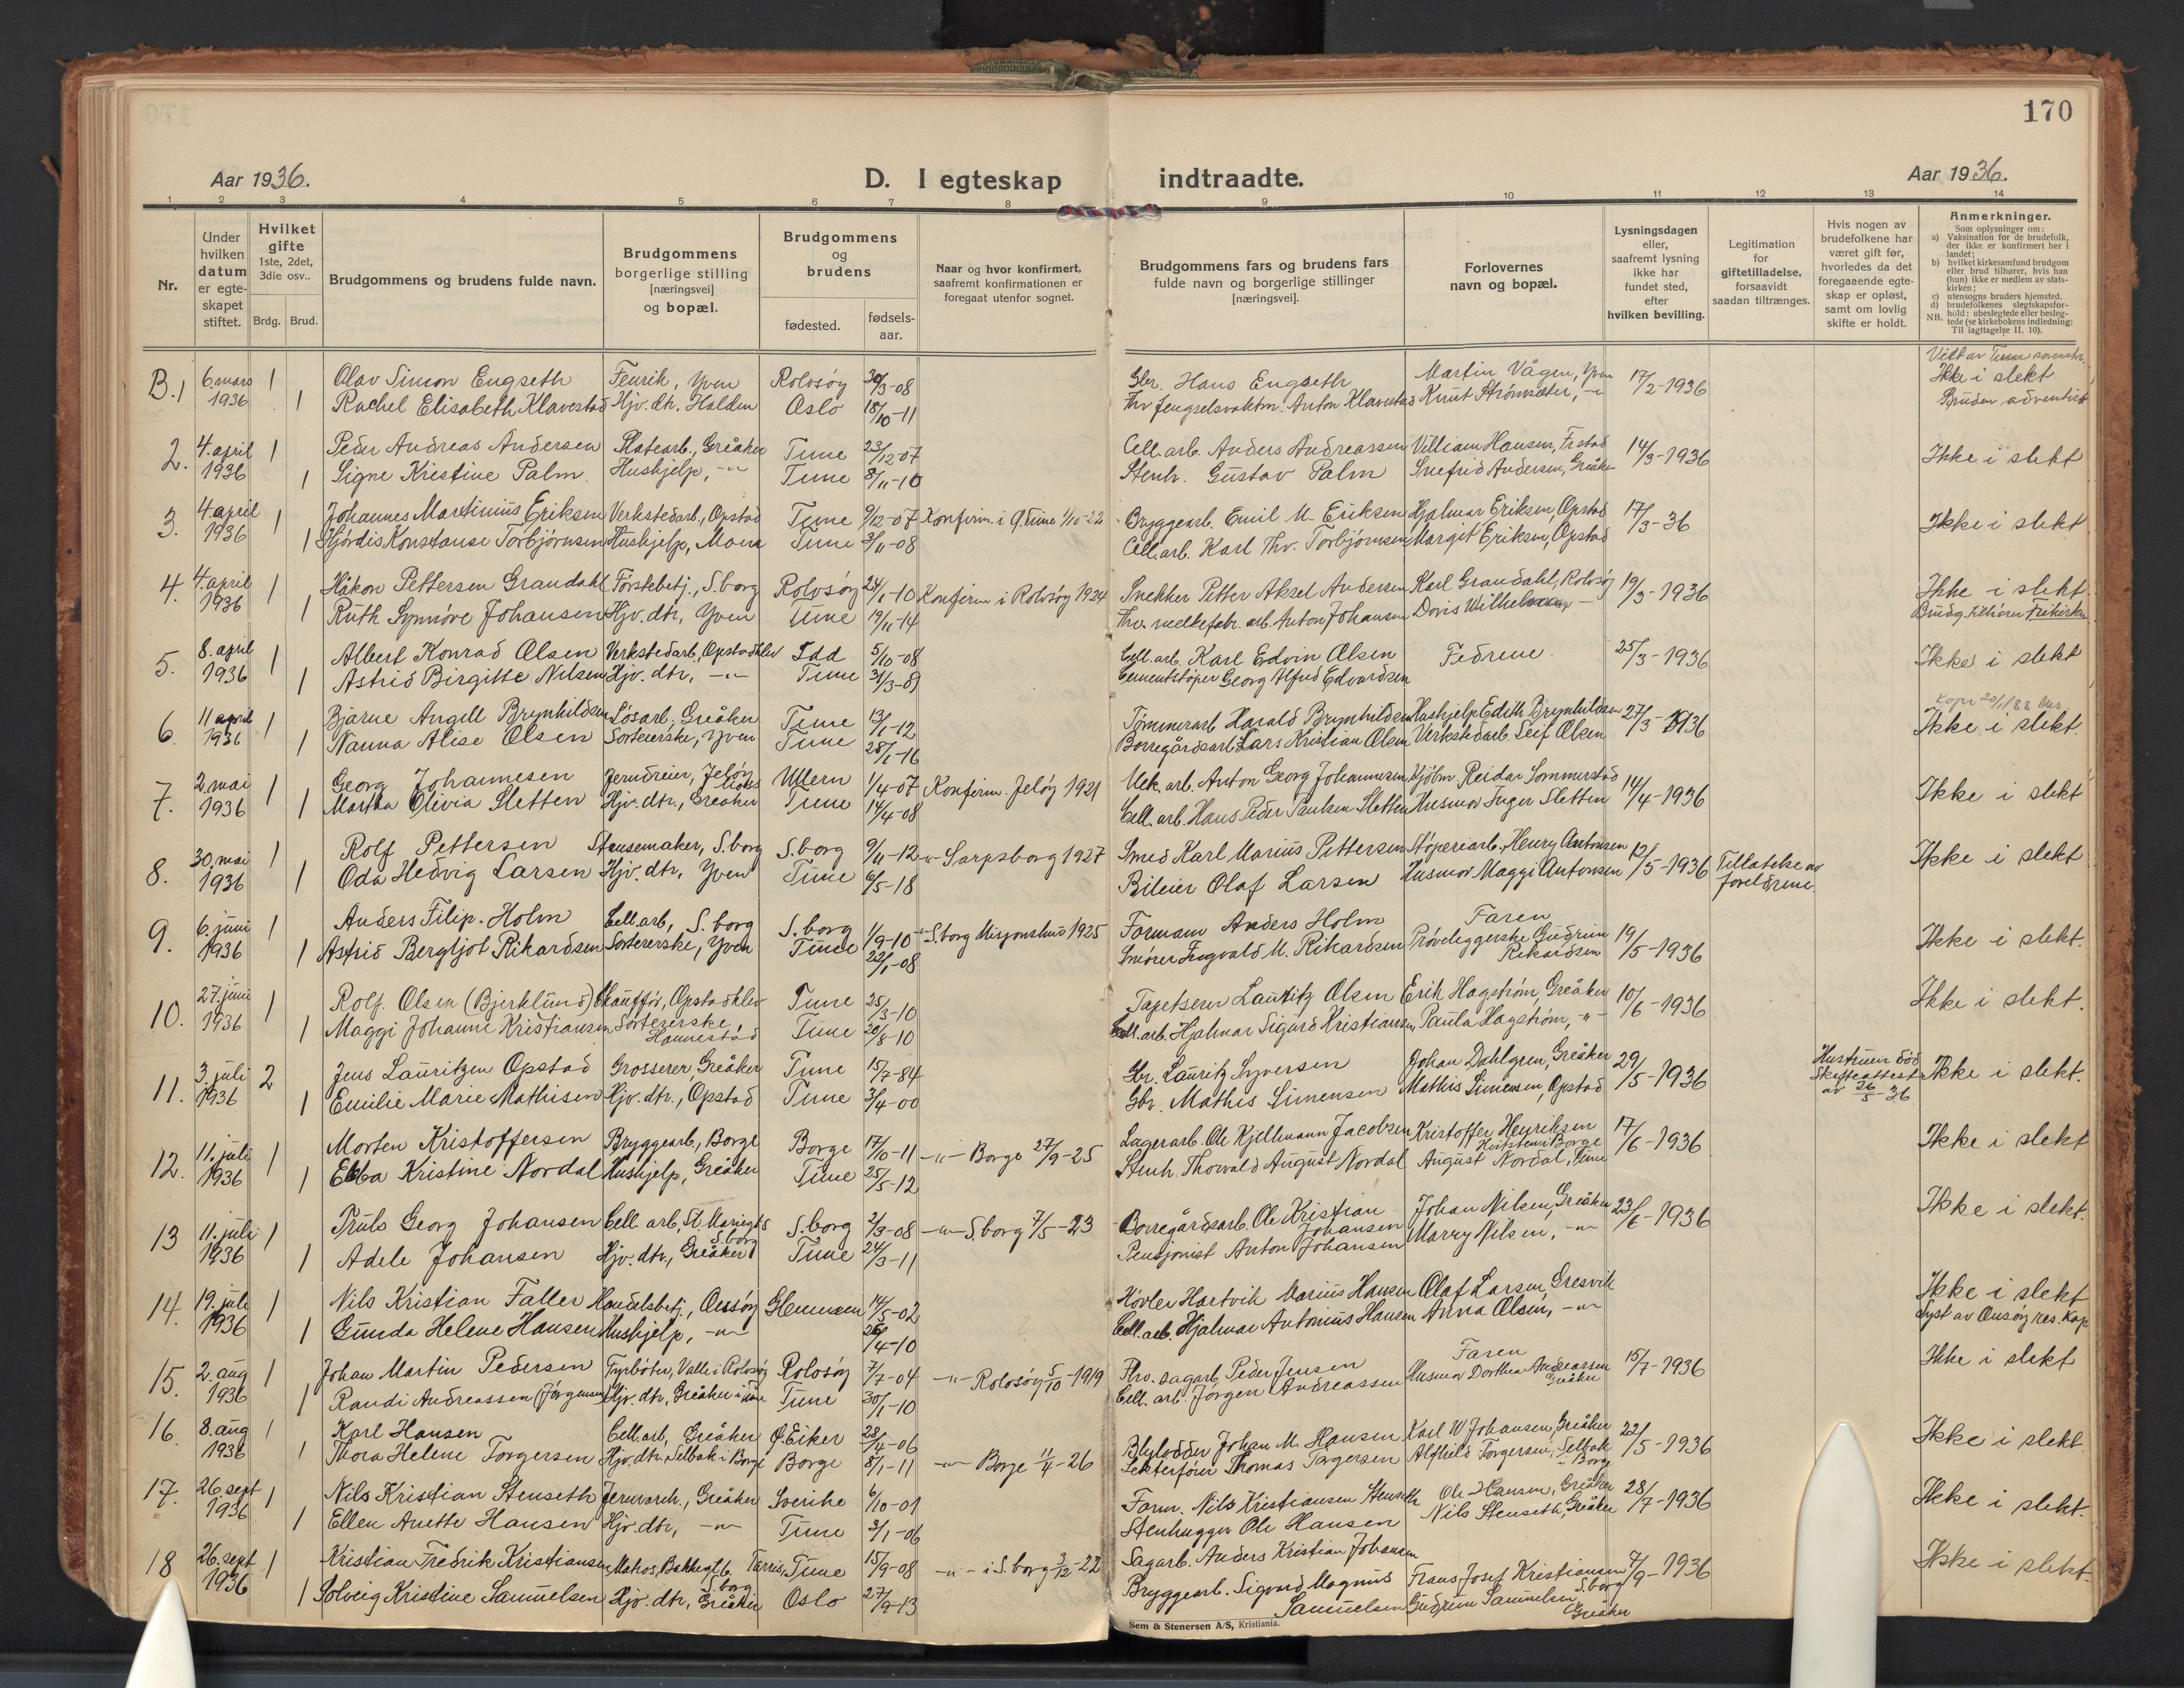 170
Aar 1936.
D. I egteskap indtraadte.
Aar 1936.
1 2 3 4 5 6 7 8 9 10 11 12 13 14
Nr.
Under hvilken datum er egte-skapet stiftet.
Hvilket gifte 1ste, 2det, 3die osv..
Brdg. Brud.
Brudgommens og brudens fulde navn.
Brudgommens borgerlige stilling [næringsvei] og bopæl.
Brudgommens og brudens
fødested.
fødsels-aar.
Naar og hvor konfirmert, saafremt konfirmationen er foregaat utenfor sognet.
Brudgommens fars og brudens fars fulde navn og borgerlige stillinger [næringsvei].
Forlovernes navn og bopæl.
Lysningsdagen eller, saafremt lysning ikke har fundet sted, efter hvilken bevilling.
Legitimation for giftetilladelse, forsaavidt saadan tiltrænges.
Hvis nogen av brudefolkene har været gift før, hvorledes da det foregaaende egte-skap er opløst, samt om lovlig skifte er holdt.
Anmerkninger.
Som oplysninger om:
a) Vaksination for de brudefolk, der ikke er konfirmert her i landet;
b) hvilket kirkesamfund brudgom eller brud tilhører, hvis han (hun) ikke er medlem av stats-kirken;
c) utensogns bruders hjemsted.
d) brudefolkenes slegtskapsfor-hold: ubeslegtede eller besleg-tede (se kirkebokens indledning: Til iagttagelse II. 10).
NB.
B.1 6.mars 1936 1 Olav Simon Engseth Fenrik, Yven Rolvsøy 30/3-08 Gbr. Hans Engseth Martin Vågen, Yven 17/2-1936 Ikke i slekt
1 Rachel Elisabeth Klavestad Hjv. dtr. Halden Oslo 18/10-11 Fhv fengselsvaktm. Anton Klavestad Knut Strømsæter, -"- Bruden adventist
2. 4.april 1936 1 Peder Andreas Andersen Platearb., Greåker Tune 23/12-07 Cell. arb. Anders Andreassen Villiam Hansen, Frstad 14/3-1936 Ikke i slekt
1 Signe Kristine Palm Hushjelp, -"- Tune 8/11-10 Stenh. Gustav Palm Snefrid Andersen, Greåker
3. 4 april 1936 1 Johannes Martinius Eriksen Verkstedarb., Opstad Tune 9/12-07 Konfirm. i Ø. Tune 1/10-22 Bryggearb. Emil M. Eriksen Hjalmar Eriksen, Opstad 17/3-36 Ikke i slekt
1 Hjørdis Konstanse Torbjørnsen Hushjelp, Moen Tune 3/11-08 Cell. arb. Karl Thv. Torbjørnsen Margit Eriksen, Opstad
4. 4.april 1936 1 Håkon Pettersen Grandahl Førstebetj., S.borg Rolvsøy 24/1-10 Konfirm i Rolvsøy 1924 Snekker Petter Aksel Andersen Karl Grandahl, Rolvsøy 19/3-1936 Ikke i slekt.
1 Ruth Synnøve Johansen Hjv. dtr., Yven Tune 19/11-14 Fhv. melkefabr. arb. Anton Johansen Doris Wilhelmsen Brudg. tilhører Frikirken
5. 8. april 1936 1 Albert Konrad Olsen Verkstedarb, Opstadhlev Idd 5/10-08 Cell. arb. Karl Edvin Olsen Fedrene. 25/3-1936 Ikke i slekt
1 Astrid Birgitte Nilsen Hjv. dtr, -"- Tune 31/3-09 Cementstøper Georg Alfred Edvardsen
6. 11 april 1936 1 Bjarne Angell Brynhildsen Løsarb, Greåker Tune 13/1-12 Tømmerarb Harald Brynhildsen Hushjelp Edith Brynhildsen 27/3-1936 Ikke i slekt.
1 Nanna Alise Olsen Sortererske, Yven Tune 28/1-16 Borregårdsarb Lars Kristian Olsen Verkstedarb. Leif Olsen
7. 2.mai 1936 1 Georg Johannesen Jerndreier, Jeløy Moss Ullern 1/4-07 Konfirm. Jeløy 1921 Mek. arb. Anton Georg Johannesen Hjølm. Reidar Sommerstad 14/4-1936 Ikke i slekt
1 Martha Olivia Sletten Hjv. dtr., Greåker Tune 14/4-08 Cell. arb. Hans Peder Paulsen Sletten Husmor Inger Sletten
8. 30.mai 1936 1 Rolf Pettersen Stansemaker, S.borg S.borg 9/11-12 -"- Sarpsborg 1927 Smed Karl Marius Pettersen Støperiarb. Henry Antonsen 12/5-1936 Tillatelse av foreldrene. Ikke i slekt
1 Oda Hedvig Larsen Hjv. dtr, Yven Tune 6/5-18 Bileier Olaf Larsen Husmor Maggi Antonsen
9. 6.juni 1936 1 Anders Filip. Holm Cell. arb, S. borg S. borg 1/9-10 -"- S.borg Misjonshus 1925 Formann Anders Holm Faren 19/5-1936 Ikke i slekt.
1 Astrid Bergljot Rikardsen Sortererske, Yven Tune 22/1-08 Smører Ingvald M. Rikardsen Prøveleggerske Gudrun Rikardsen
10. 27.juni 1936 1 Rolf Olsen (Bjerklund) Chauffør, Opstadhlev Tune 25/3-10 Tapetserer Lauritz Olsen Erik Hagstrøm, Greåker 10/6-1936 Ikke i slekt.
1 Maggi Johanne Kristiansen Sortererske, Hannestad Tune 20/8-10 Cell. arb. Hjalmar Sigurd Kristiansen Paula Hagstrøm, -"-
11. 3. juli 1936 2 Jens Lauritzen Opstad Grosserer Greåker Tune 15/7-84 Gbr. Lauritz Syversen Johan Dahlgren, Greåker 29/5-1936 Hustruen død Skifteattest av 26/5-36 Ikke i slekt.
1 Emilie Marie Mathisen Hjv. dtr., Opstad Tune 3/4-00 Gbr. Mathis Simensen Mathis Simensen, Opstad
12. 11.juli 1936 1 Morten Kristoffersen Bryggearb., Borge Borge 17/10-11 -"- Borge 27/9-25 Lagerarb. Ole Kjellmann Jacobsen Kristoffer Henriksen i Borge 17/6-1936 Ikke i slekt
1 Ebba Kristine Nordal Hushjelp, Greåker Tune 25/5-12 Stenh. Thorvald August Nordal August Nordal, Tune
13 11.juli 1936 1 Truls Georg Johansen Cell. arb, St. Mariegt S.borg S.borg 2/3-08 -"- S.borg 7/5-23 Borregårdsarb. Ole Kristian Johansen Johan Nilsen, Greåker 23/6-1936 Ikke i slekt.
1 Adele Johansen Hjv. dtr, Greåker Tune 24/3-11 Pensjonist Anton Johansen Marry Nilsen, -"-
14. 19. juli 1936 1 Nils Kristian Faller Handelsbetj., Onsøy Glemmen 14/5-02 Høvler Hartvik Marius Hansen Olaf Larsen, Gresvik Ikke i slekt
1 Gunda Helene Hansen Hushjelp, -"- 26/4-10 Cell. arb. Hjalmar Antonius Hansen Anna Olsen, -"- Lyst av Onsøy res. kap
15. 2. aug 1936 1 Johan Martin Pedersen Fyrbøter, Valle i Rolvsøy Rolvsøy 7/7-04 -"- Rolvsøy 5/10-1919 Fhv. sagarb. Peder Jensen Faren 15/7-1936 Ikke i slekt
1 Randi Andreassen (Jørgensen) Hjv. dtr, Greåker i Tune Tune 30/1-10 Cell. arb. Jørgen Andreassen Husmor Dorthea Andreassen Greåker
16. 8. aug 1936 1 Karl Hansen Cell. arb, Greåker Ø. Eiker 28/4-06 Blylodder Johan M. Hansen Karl W Johansen, Greåker 22/5-1936 Ikke i slekt.
1 Thora Helene Torgersen Hjv. dtr. Selbak i Borge Borge 8/1-11 -"- Borge 11/4-26 Lekterfører Thomas Torgersen Alfhild Torgersen, Selbak i Borge
17. 26 sept 1936 1 Nils Kristian Stenseth Jernvareh., Greåker Sverike 6/10-01 Form. Nils Kristiansen Stenseth Ole Hansen, Greåker 28/7-1936 Ikke i slekt.
1 Ellen Anette Hansen Hjv. dtr, -"- Tune 3/1-06 Stenhugger Ole Hansen Nils Stenseth, Greåker
18 26.sept 1936 1 Kristian Fredrik Kristiansen Bakkegt. 6. S.borg Tune 15/9-08 -"- i S.borg 3/12-22 Sagarb. Anders Kristian Johansen Frans Josef Kristiansen S.borg 7/9-1936 Ikke i slekt.
1 Solveig Kristine Samuelsen Hjv. dtr, Greåker Oslo 27/9-13 Bryggearb. Sigvard Magnus Samuelsen Gudrun Samuelsen Greåker
Sem & Stenersen A/S, Kristiania.